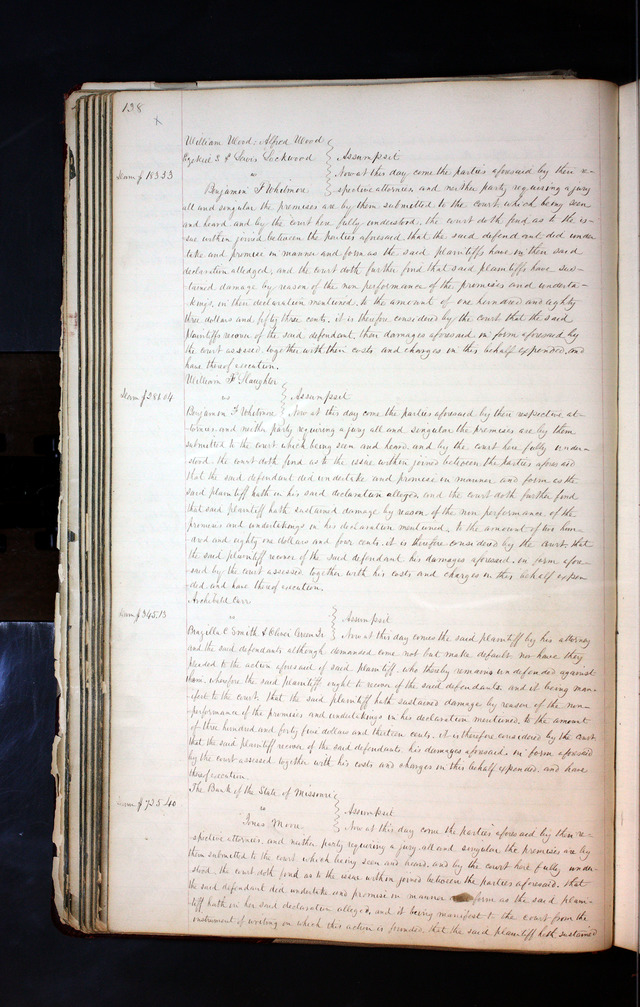 138
x
William Wood, Alfred Wood
Ezekiel S & Lewis Lockwood } Assumpsit
Dam $183.53 vs } Now at this day come the parties aforesaid by their re-
Benjamin F Whitmore } spective attornies and neither party requiring a jury
all and singular the premises are by them submitted to the court which being seen
and heard, and by the court here fully understood, the court doth find as to the is-
sue within joined between the parties aforesaid that the said defendant did under
take and promise in manner and form as the said plaintiffs have in their said
declaration alledged, and the court doth further find that said plaintiffs have sus-
tained damage by reason of the non performance of the promises and underta-
kings, in their declaration mentioned, to the amount of one hundred and eighty
three dollars and fifty three cents, it is therefore considered by the court that the said
plaintiffs recover of the said defendant, their damages aforesaid in form aforesaid by
the court assessed, together with their costs and charges in this behalf expended, and
have thereof execution.
William F. Slaughter
Dam $281.04 vs } Assumpsit
Benjamin F Whitmore } Now at this day come the parties aforesaid by their respective at-
tornies and neither party requiring a jury all and singular the premises are by them
submitted to the court which being seen and heard, and by the court here fully under-
stood, the court doth find as to the issue within joined between the parties aforesaid
that the said defendant did undertake and promise in manner and form as the
said plaintiff hath in his said declaration alleged and the court doth further find
that said plaintiff hath sustained damage by reason of the non performance of the
promises and undertakings in his declaration mentioned, to the amount of two hun-
dred and eighty one dollars and four cents, it is therefore considered by the court that
the said plaintiff recover of the said defendant his damages aforesaid in form afore-
said by the court assessed together with his costs and charges in this behalf expen-
ded, and have thereof execution.
Archibald Carr
Dam $345.13 vs } Assumpsit
Brazilla C. Smith & Oliver } Now at this day comes the said plaintiff by his attorney
and the said defendants although demanded come not but make default, nor have they
pleaded to the action aforesaid of said plaintiff, who thereby remains undefended against
them, wherefore the said plaintiff ought to recover of the said defendants, and it being man-
ifest to the court, that the said plaintiff hath sustained damage by reason of the non-
performance of the promises and undertakings in his declaration mentioned, to the amount
of three hundred and forty five dollars and thirteen cents, it is therefore considered by the court
that the said plaintiff recover of the said defendants his damages aforesaid in form aforesaid
by the court assessed together with his costs and charges in this behalf expended, and have
thereof execution.
The Bank of the State of Missouri
Dam $725.40 vs } Assumpsit
Moore } Now at this day come the parties aforesaid by their re-
spective attornies, and neither party requiring a jury, all and singular the premises are by
them submitted to the court which being seen and heard, and by the court here fully under-
stood, the court doth find as to the issue within joined between the parties aforesaid, that
the said defendant did undertake and promise in manner form as the said plain-
tiff hath in her said declaration alleged, and it being manifest to the court from the
instrument of writing on which this action is founded, that the said plaintiff hath sustained